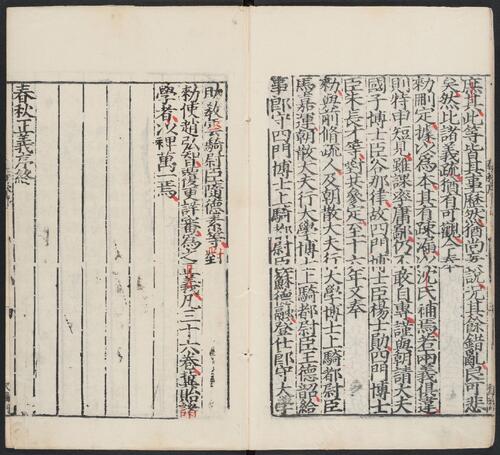 庶其此等皆其事歷然猶尚妄說況其餘錯亂良可悲
矣然比諸義疏猶有可觀今奉
勑刪定據以為本其有疎漏以沈氏補焉若兩義俱違
則特申短見雖課率庸鄙仍不敢自專謹與朝請大夫
國子博士臣谷那律故四門博士臣楊士勛四門博士
臣朱長才等對共參定至十六年又奉
勑與前脩疏人及朝散大夫行大學博士上騎都尉臣
馬嘉運朝散大夫行大學博士上騎都尉臣王德韶給
事郎守四門博士上騎都尉臣蘇德融登仕郎守太學
助教雲騎尉臣隨德素等對
勑使趙弘智覆更詳審為之正義凡三十六卷冀貽諸
學者以裨萬一焉
春秋正義序終